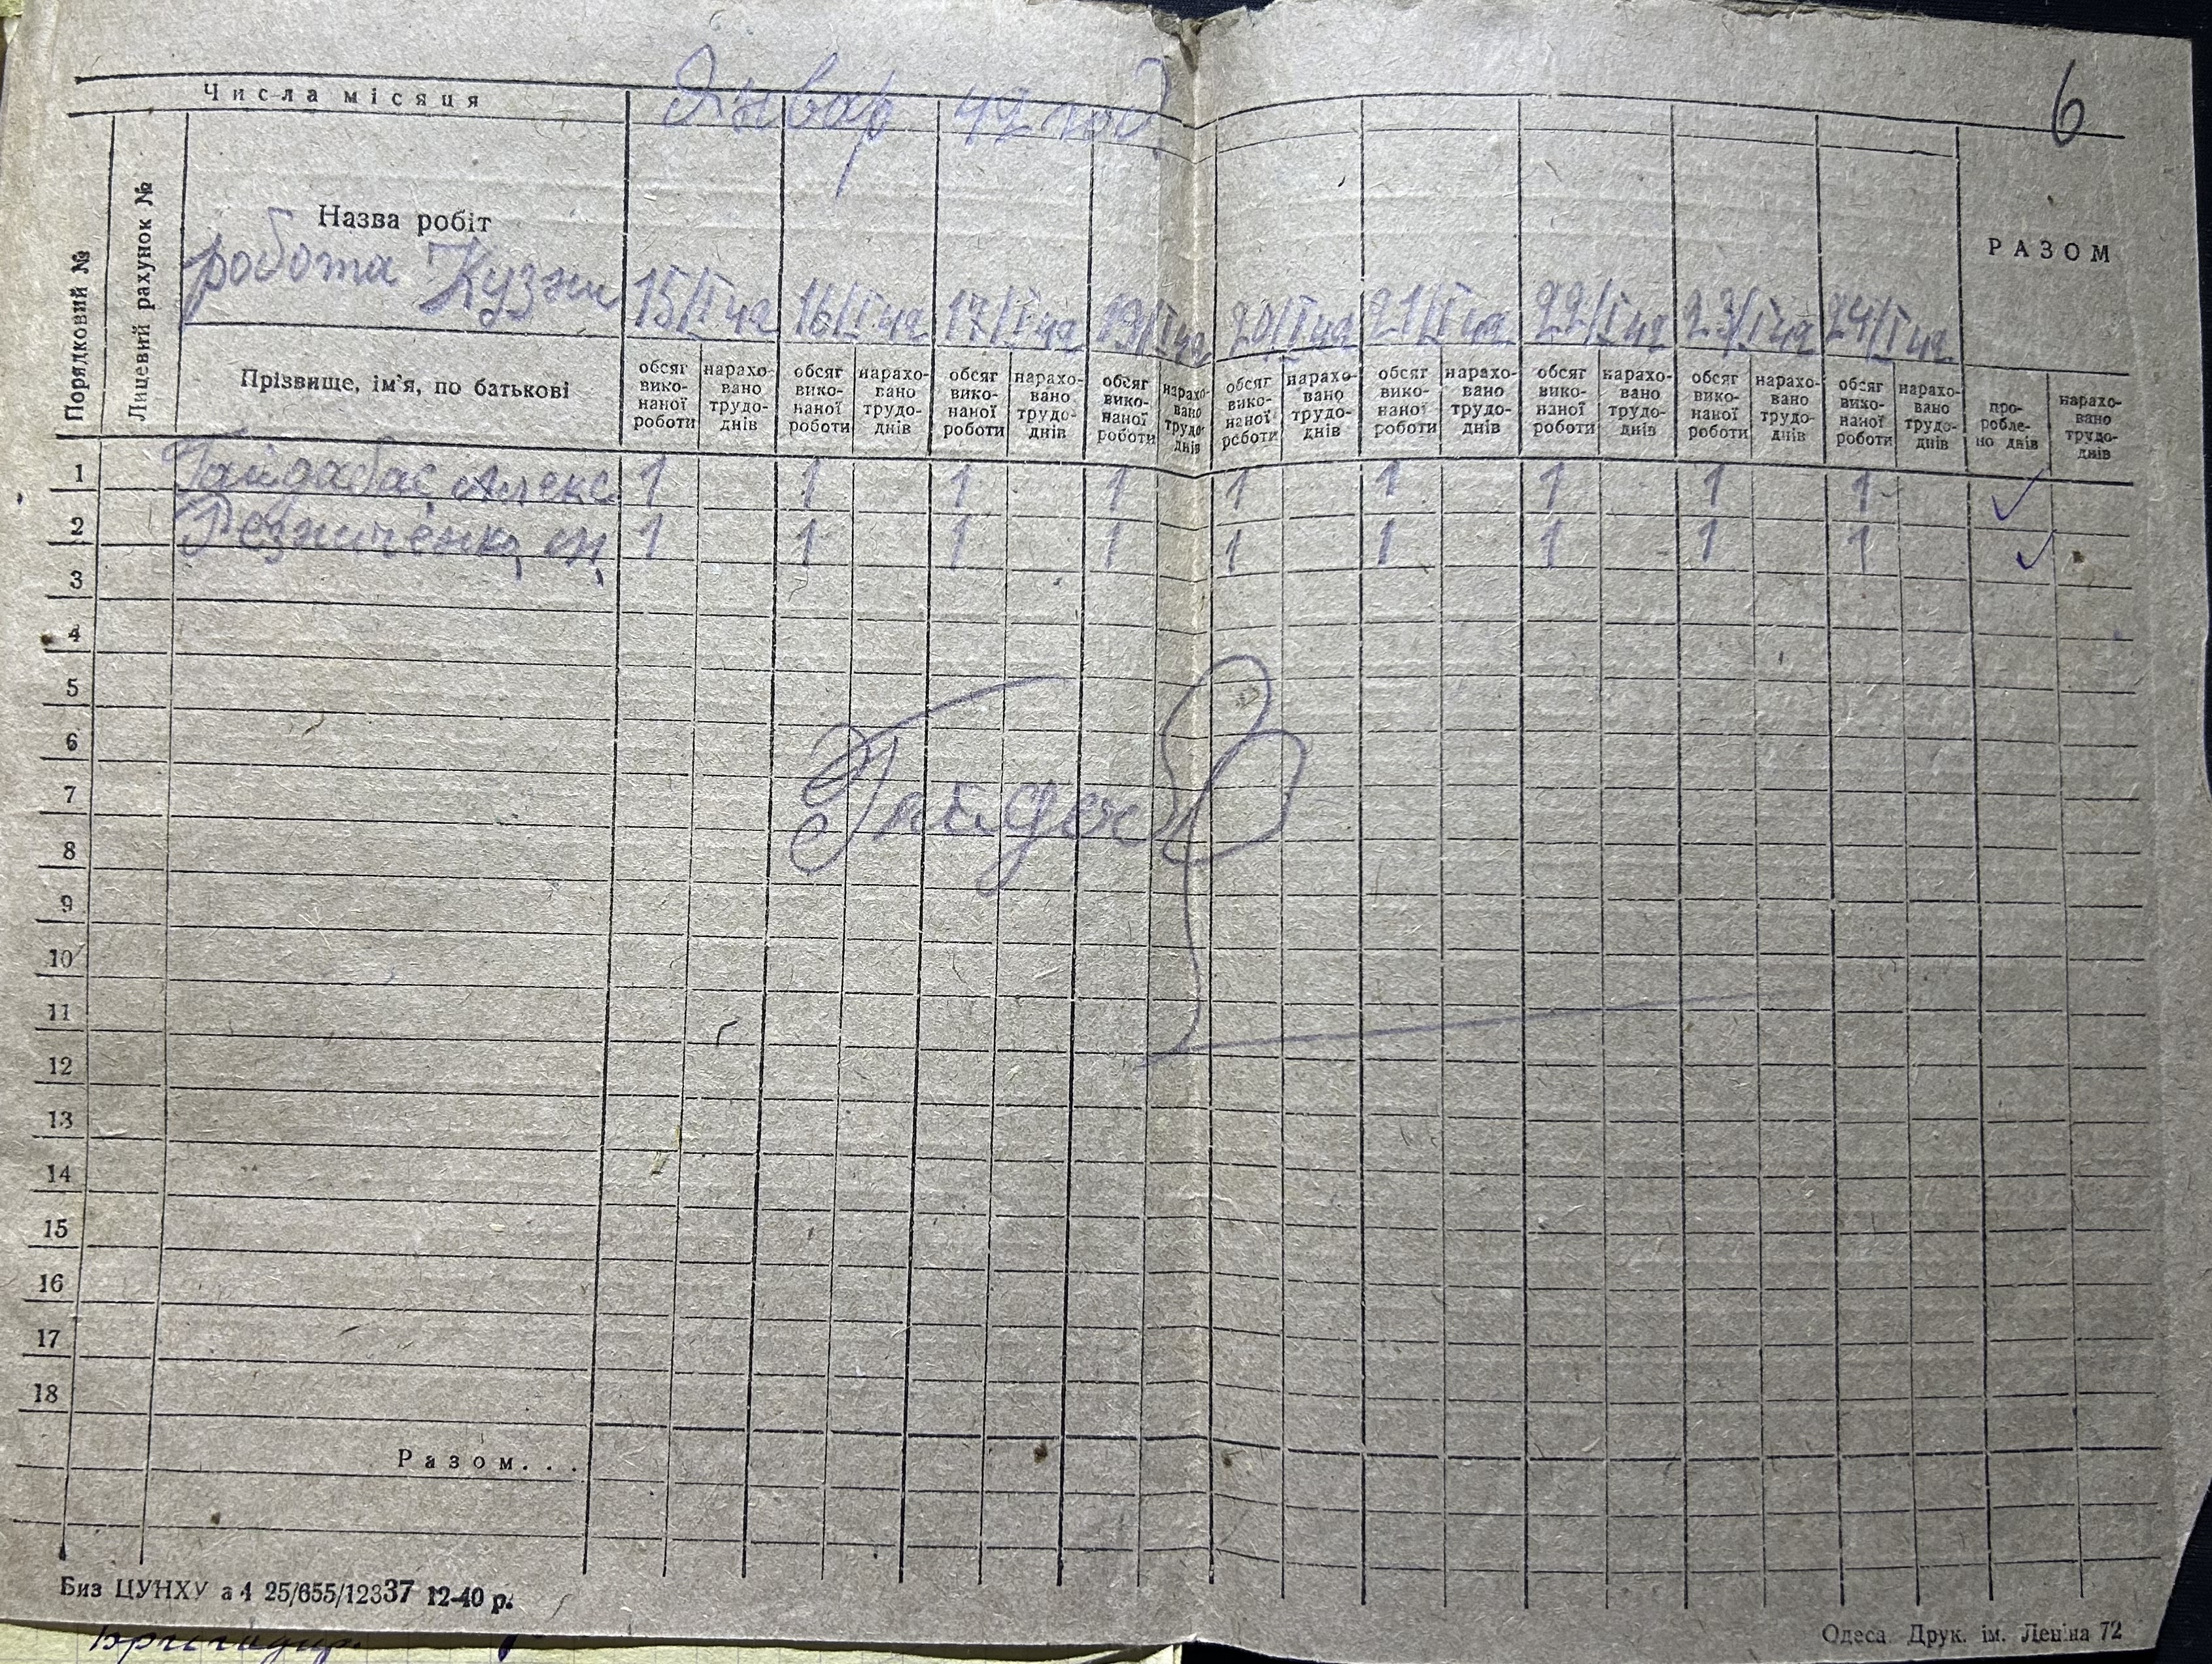 6
Числа місяця
Январ 42 год
Порядковий №
Лицевий рахунок №
Назва робіт
робота Кузни
15/I 42 16/I 42 17/I 42 19/I 42 20/I 42 21/I 42 22/I 42 23/I 42 24/I 42
РАЗОМ
Прізвище, ім'я, по батькові
обсяг вико- наної роботи нарахо- вано трудо- днів обсяг вико- наної роботи нарахо- вано трудо- днів обсяг вико- наної роботи нарахо- вано трудо- днів обсяг вико- наної роботи нарахо- вано трудо- днів обсяг вико- наної роботи нарахо- вано трудо- днів обсяг вико- наної роботи нарахо- вано трудо- днів обсяг вико- наної роботи нарахо- вано трудо- днів обсяг вико- наної роботи нарахо- вано трудо- днів обсяг вико- наної роботи нарахо- вано трудо- днів про- робле- но днів нарахо- вано трудо- днів
1 Гайдабас Алекс 1 1 1 1 1 1 1 1 1 ✓
2 1 1 1 1 1 1 1 1 1 ✓
3
4
5
6
7
8
9
10
11
12
13
14
15
16
17
18
Разом...
Биз ЦУНХУ а 4 25/655/12337 12-40 р.
Одеса Друк. ім. Леніна 72
Бригадир.